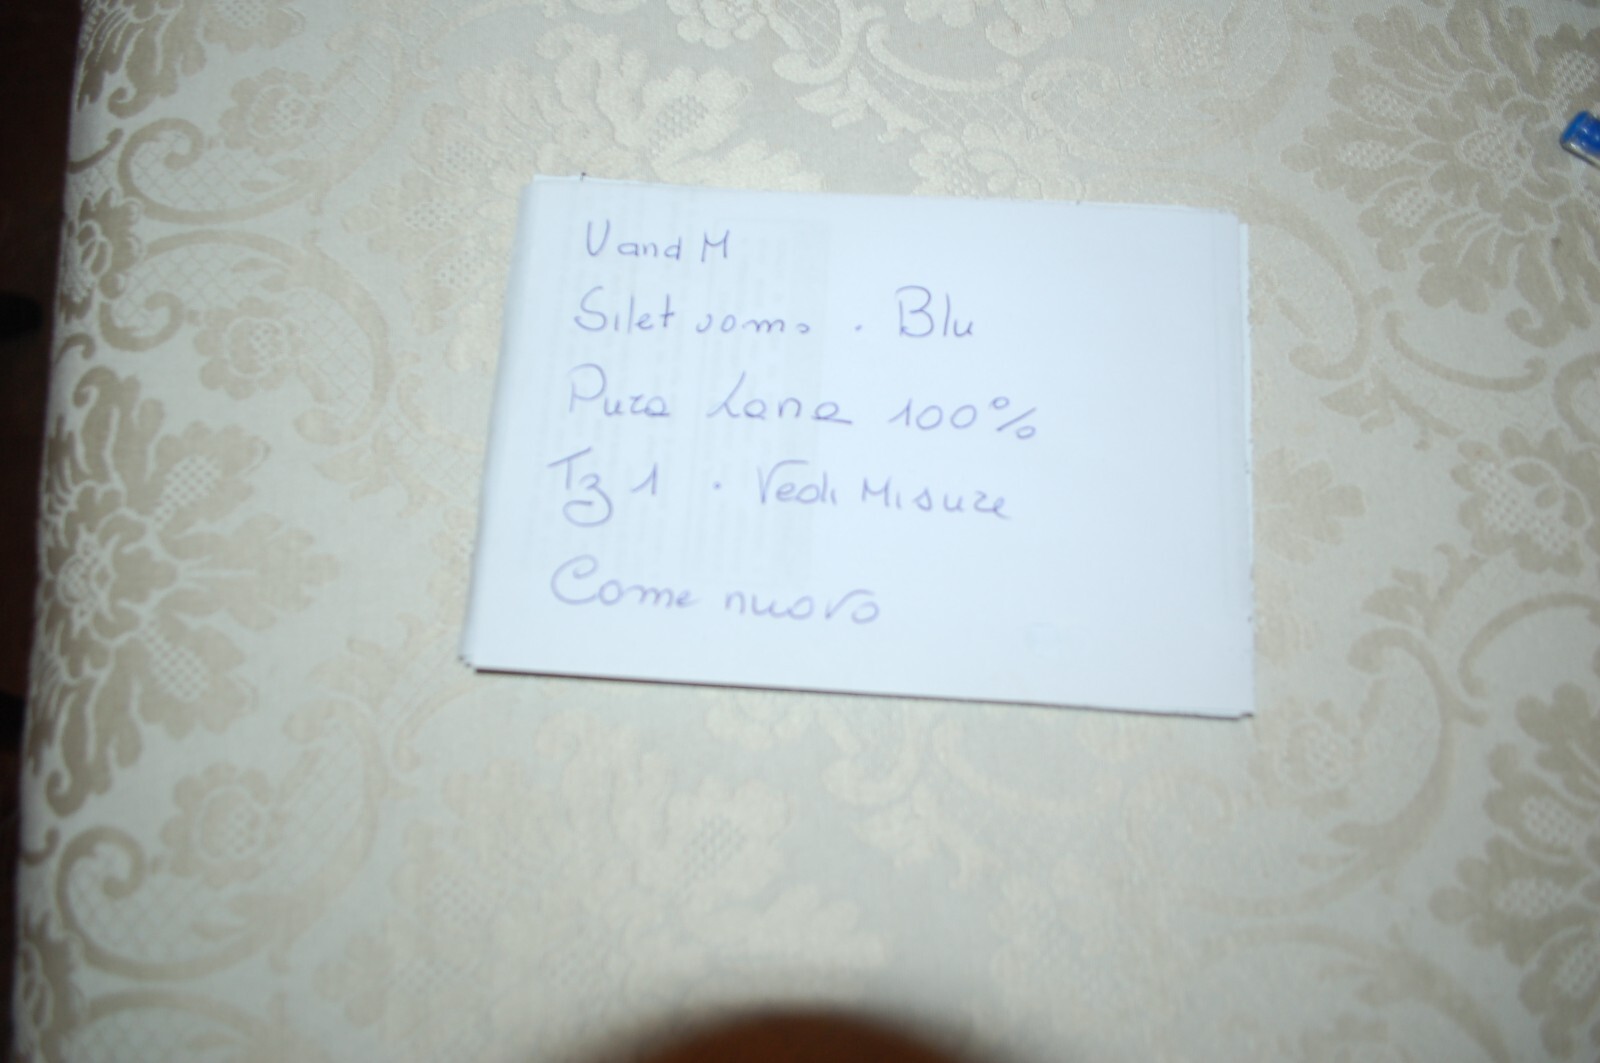 U and M
Silet uomo . Blu
Pura Lana 100%
Tg 1 . Vedi Misure
Come nuovo